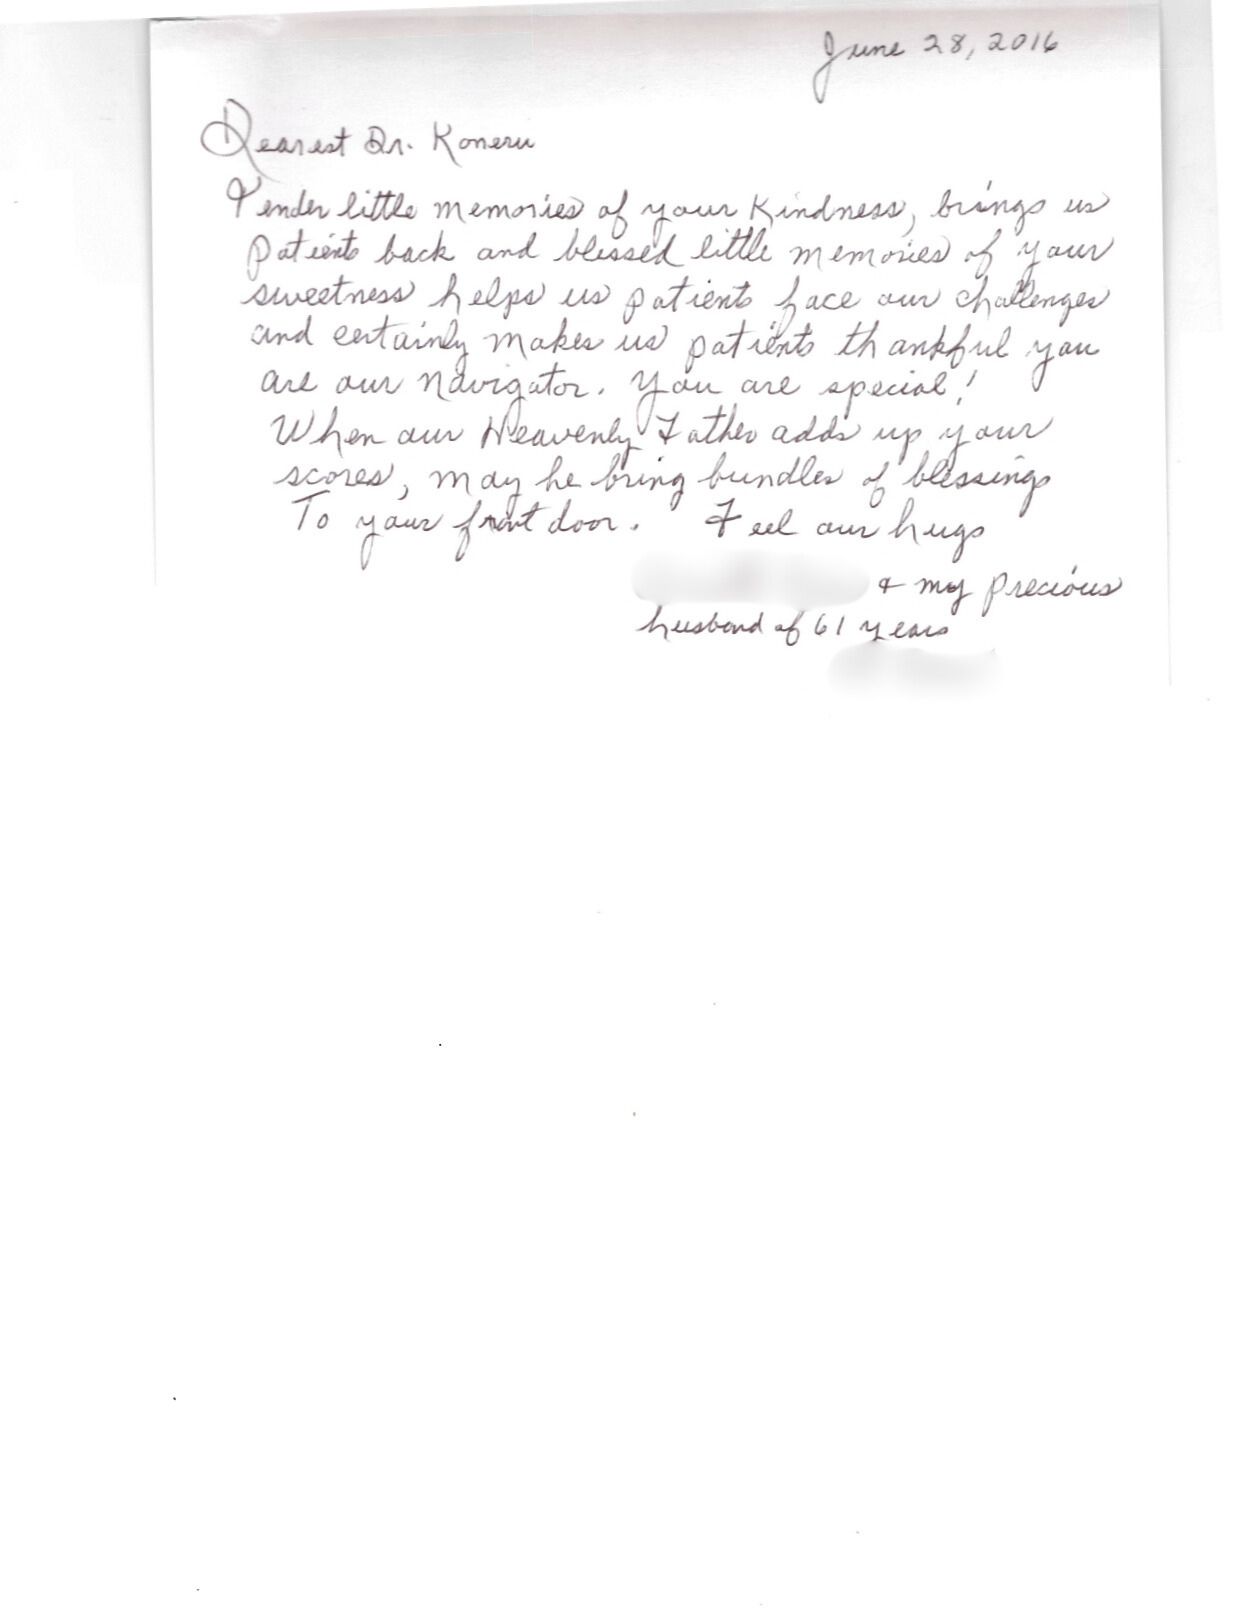 June 28, 2016
Dearest Dr. Koneru
Tender little memories of your Kindness, brings us
patients back and blessed little memories of your
sweetness helps us patients face our challenges
and certainly makes us patients thankful you
are our Navigator. You are special!
When our Heavenly Father adds up your
scores, may he bring bundles of blessings
To your front door. Feel our hugs
& my precious
husband of 61 years